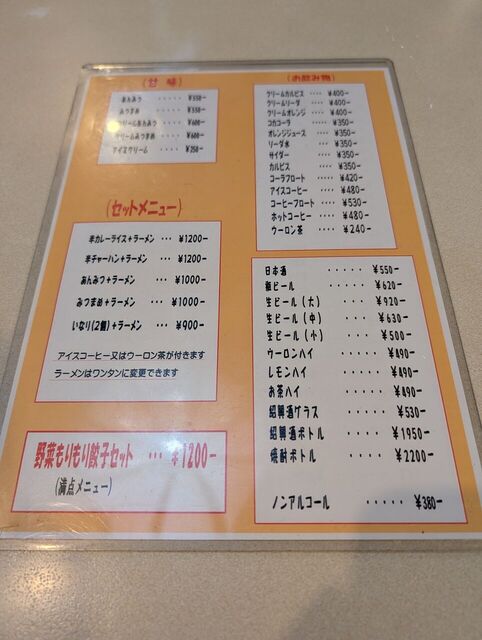 (甘味)
あんみつ ····· ¥550-
みつまめ ····· ¥550-
クリームあんみつ ···· ¥600-
クリームみつまめ ···· ¥600-
アイスクリーム ····· ¥250-
(セットメニュー)
半カレーライス+ラーメン ··· ¥1200-
半チャーハン+ラーメン ··· ¥1200-
あんみつ+ラーメン ···· ¥1000-
みつまめ+ラーメン ···· ¥1000-
いなり(2個)+ラーメン ··· ¥900-
アイスコーヒー又はウーロン茶が付きます
ラーメンはワンタンに変更できます
野菜もりもり餃子セット ··· ¥1200-
(満点メニュー)
(お飲み物)
クリームカルピス ···· ¥400-
クリームソーダ ···· ¥400-
クリームオレンジ ···· ¥400-
コカコーラ ···· ¥350-
オレンジジュース ···· ¥350-
ソーダ水 ···· ¥350-
サイダー ···· ¥350-
カルピス ···· ¥350-
コーラフロート ···· ¥420-
アイスコーヒー ···· ¥480-
コーヒーフロート ···· ¥530-
ホットコーヒー ···· ¥480-
ウーロン茶 ···· ¥240-
日本酒 ····· ¥550-
瓶ビール ····· ¥620-
生ビール(大) ···· ¥920-
生ビール(中) ···· ¥630-
生ビール(小) ···· ¥500-
ウーロンハイ ···· ¥490-
レモンハイ ···· ¥490-
お茶ハイ ····· ¥490-
紹興酒グラス ···· ¥530-
紹興酒ボトル ···· ¥1950-
焼酎ボトル ···· ¥2200-
ノンアルコール ····· ¥380-